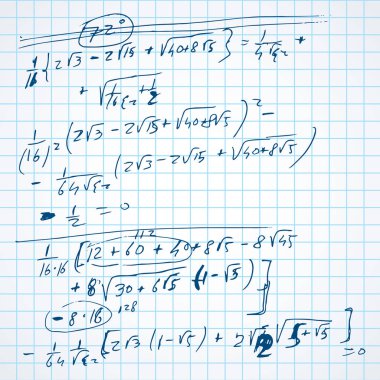 72°
1/16 {2√3 - 2√15 + √(40+8√5)} = 1/(4√ε₂) +
+ √(1/(16ε₂) + 1/2)
(1/16)² (2√3 - 2√15 + √(40+8√5))² -
- 1/(64√ε₂) (2√3 - 2√15 + √(40+8√5))
- 1/2 = 0
112
1/(16·16) [12 + 60 + 40 + 8√5 - 8√45
+ 8√(30 + 6√5) (1 - √5)]
- 8·16 128
- 1/64 1/√ε₂ [2√3 (1 - √5) + 2√2 √(5 + √5)] = 0